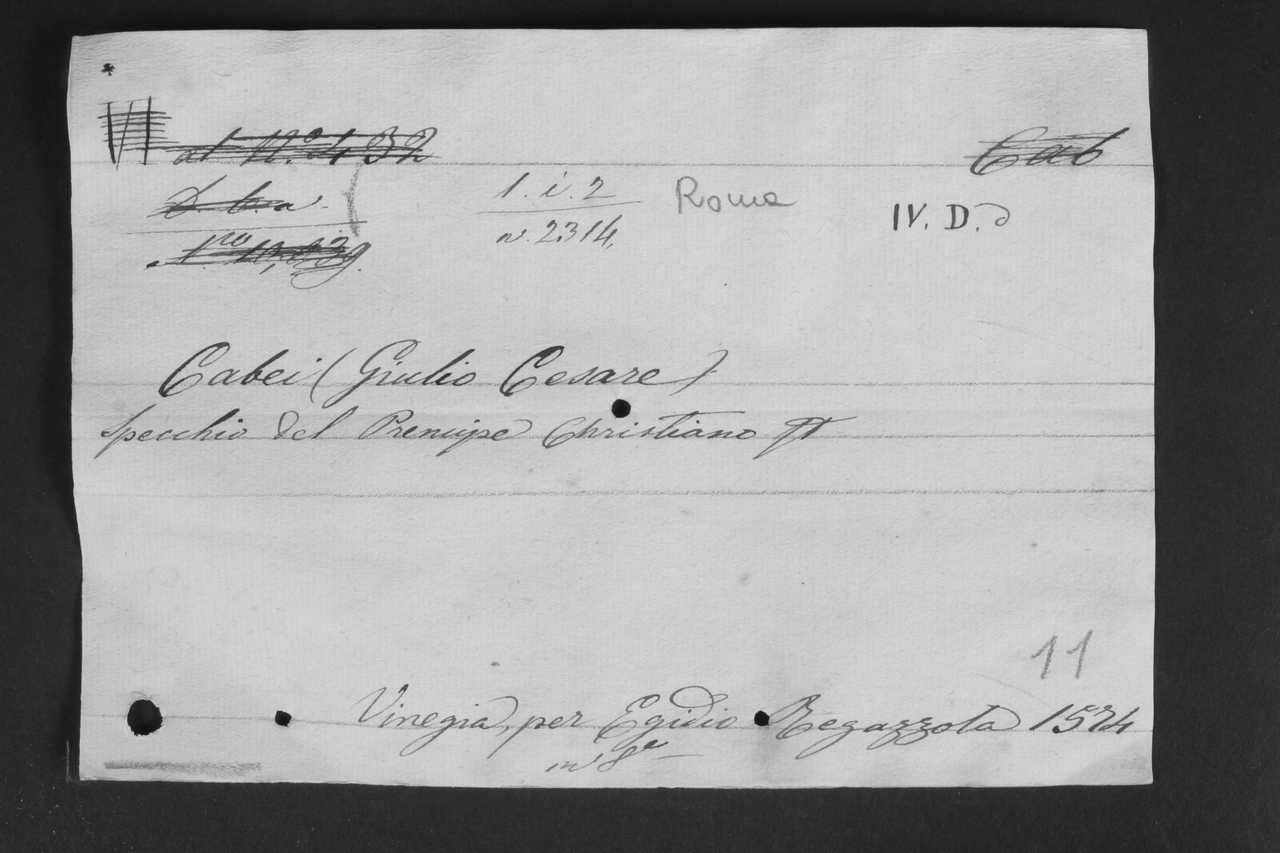 *
VI al N.º 432 Cab
D. b. a. 1. i. 2 Roma IV. D. d
n. 2314.
Cabei (Giulio Cesare)
Specchio del Prencipe Christiano
11
Vinegia, per Egidio Regazzola 1574
in 8º